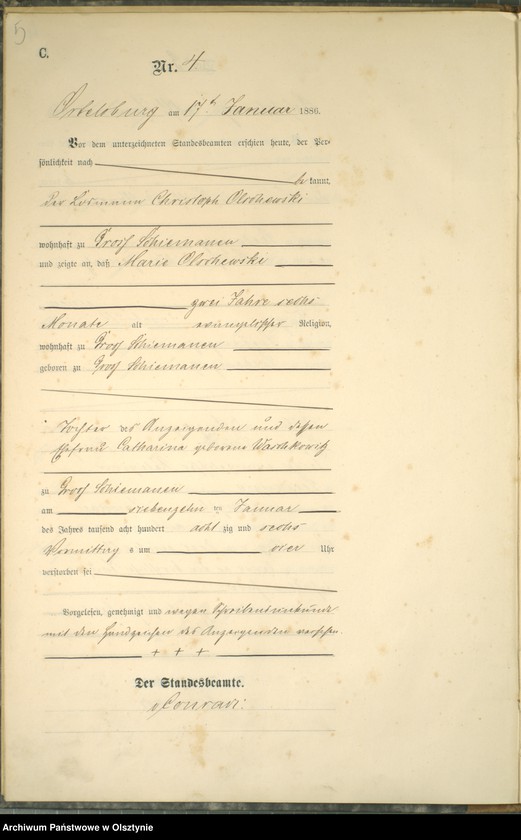 5
C.
Nr. 4
Ortelsburg am 17t Januar 1886.
Vor dem unterzeichneten Standesbeamten erschien heute, der Per-
sönlichkeit nach
be kannt,
der Losmann Christoph Olschewski
wohnhaft zu Groß Schiemanen
und zeigte an, daß Marie Olschewski
zwei Jahre sechs
Monate alt evangelischer Religion,
wohnhaft zu Groß Schiemanen
geboren zu Groß Schiemanen
Tochter des Anzeigenden und dessen
Ehefrau Catharina geborene
zu Groß Schiemanen
am siebenzehn ten Januar
des Jahres tausend acht hundert acht zig und sechs
Vormittag s um vier Uhr
verstorben sei
Vorgelesen, genehmigt und wegen Schreibensunkunde
mit den Handzeichen des Anzeigenden versehen
+ + +
Der Standesbeamte.
Conradi.
Archiwum Państwowe w Olsztynie